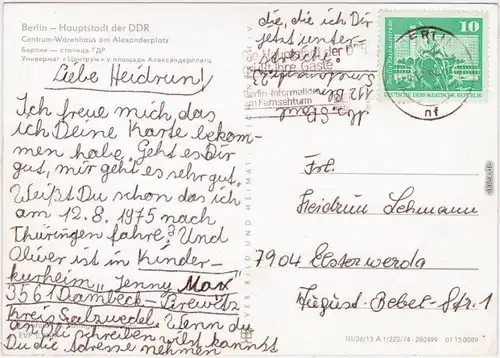 Berlin – Hauptstadt der DDR
Centrum-Warenhaus am Alexanderplatz
Берлин — столица ГДР
Универмаг «Центрум» у площади Александерплатц
Liebe Heidrun!
Ich freue mich, das
ich Deine Karte bekom-
men habe. Geht es Dir
gut, mir geht es sehr gut.
Weißt Du schon das ich
am 12.8.1975 nach
Thüringen fahre? Und
Oliver ist in Kinder-
kurheim "Jenny Max
3561 Dambeck-Brewitz
Kreis Salzwedel. Wenn du
an Oli schreiben willst kannst
Du die Adresse nehmen
die, die ich Dir
jetzt unter-
Berlin-Information
im Fernsehturm
BILD UND HEIMAT
10
DEUTSCHE DEMOKRATISCHE REPUBLIK
Frl.
Heidrun Lehmann
7904 Elsterwerda
August-Bebel-Str. 1
III/26/13 A 1/222/74 280499 01 15 0089